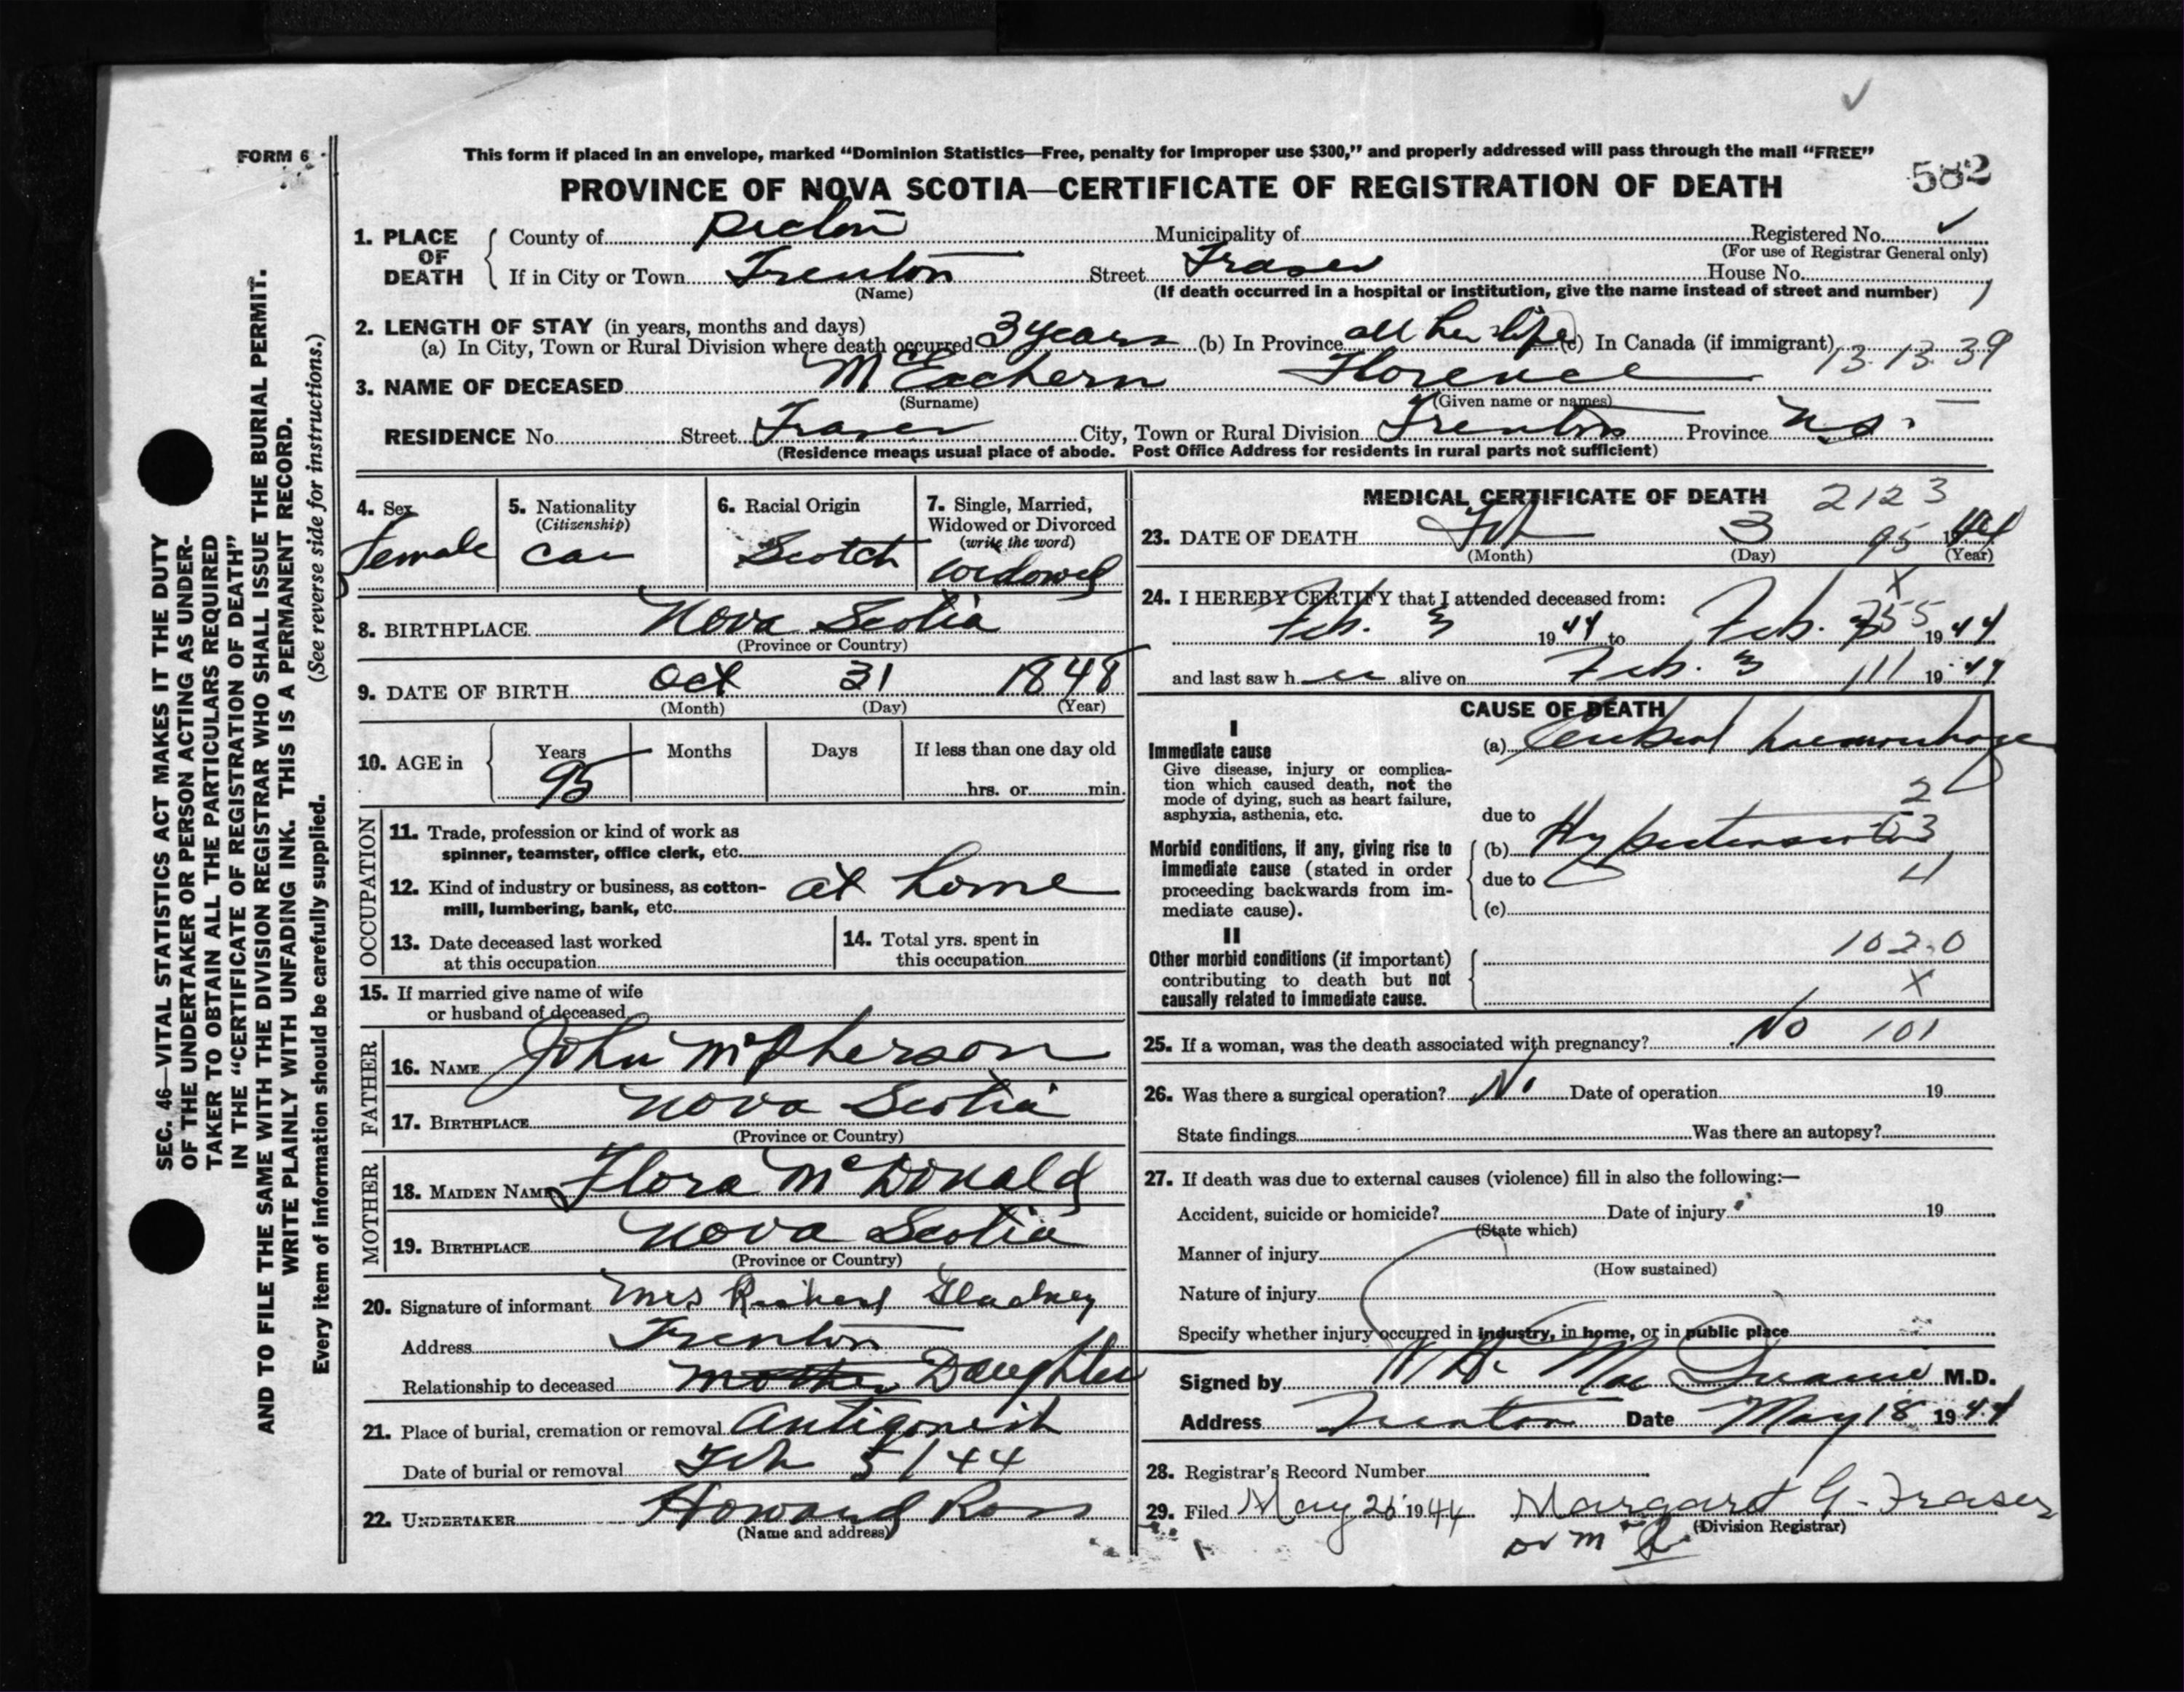 FORM 6
This form if placed in an envelope, marked “Dominion Statistics—Free, penalty for improper use $300,” and properly addressed will pass through the mail “FREE”
582
PROVINCE OF NOVA SCOTIA—CERTIFICATE OF REGISTRATION OF DEATH
1. PLACE OF DEATH County of Pictou Municipality of Registered No.
(For use of Registrar General only)
If in City or Town Trenton Street Fraser House No.
(Name) (If death occurred in a hospital or institution, give the name instead of street and number)
2. LENGTH OF STAY (in years, months and days)
(a) In City, Town or Rural Division where death occurred 3 years (b) In Province all her life (c) In Canada (if immigrant)
13 13 39
3. NAME OF DECEASED McEachern Florence
(Surname) (Given name or names)
RESIDENCE No. Street Fraser City, Town or Rural Division Trenton Province N.S.
(Residence means usual place of abode. Post Office Address for residents in rural parts not sufficient)
4. Sex Female
5. Nationality (Citizenship) Can
6. Racial Origin Scotch
7. Single, Married, Widowed or Divorced (write the word) Widowed
8. BIRTHPLACE Nova Scotia
(Province or Country)
9. DATE OF BIRTH Oct 31 1848
(Month) (Day) (Year)
10. AGE in Years Months Days If less than one day old
95 hrs. or min.
OCCUPATION
11. Trade, profession or kind of work as
spinner, teamster, office clerk, etc.
12. Kind of industry or business, as cotton-
mill, lumbering, bank, etc. at home
13. Date deceased last worked
at this occupation
14. Total yrs. spent in
this occupation
15. If married give name of wife
or husband of deceased
FATHER
16. NAME John McPherson
17. BIRTHPLACE Nova Scotia
(Province or Country)
MOTHER
18. MAIDEN NAME Flora McDonald
19. BIRTHPLACE Nova Scotia
(Province or Country)
20. Signature of informant Mrs Richard
Address Trenton
Relationship to deceased Mother Daughter
21. Place of burial, cremation or removal Antigonish
Date of burial or removal Feb 5/44
22. UNDERTAKER Howard Ross
(Name and address)
MEDICAL CERTIFICATE OF DEATH 2123
23. DATE OF DEATH Feb 3 95 1944
(Month) (Day) (Year)
24. I HEREBY CERTIFY that I attended deceased from: X
Feb. 3 1944 to Feb. 55 1944
and last saw her alive on Feb. 3 111 1944
CAUSE OF DEATH
I
Immediate cause
Give disease, injury or complica-
tion which caused death, not the
mode of dying, such as heart failure,
asphyxia, asthenia, etc.
(a) Cerebral haemorrhage
2
due to
Morbid conditions, if any, giving rise to
immediate cause (stated in order
proceeding backwards from im-
mediate cause).
(b) Hypertension 3
due to 4
(c)
II
Other morbid conditions (if important)
contributing to death but not
causally related to immediate cause.
102.0
X
25. If a woman, was the death associated with pregnancy? No 101
26. Was there a surgical operation? No Date of operation 19
State findings Was there an autopsy?
27. If death was due to external causes (violence) fill in also the following:—
Accident, suicide or homicide? Date of injury 19
(State which)
Manner of injury
(How sustained)
Nature of injury
Specify whether injury occurred in industry, in home, or in public place
Signed by M.D.
Address Trenton Date May 18 1944
28. Registrar's Record Number
29. Filed May 1944 Margaret G. Fraser
(Division Registrar)
SEC. 46—VITAL STATISTICS ACT MAKES IT THE DUTY
OF THE UNDERTAKER OR PERSON ACTING AS UNDER-
TAKER TO OBTAIN ALL THE PARTICULARS REQUIRED
IN THE “CERTIFICATE OF REGISTRATION OF DEATH”
AND TO FILE THE SAME WITH THE DIVISION REGISTRAR WHO SHALL ISSUE THE BURIAL PERMIT.
WRITE PLAINLY WITH UNFADING INK. THIS IS A PERMANENT RECORD.
Every item of information should be carefully supplied. (See reverse side for instructions.)